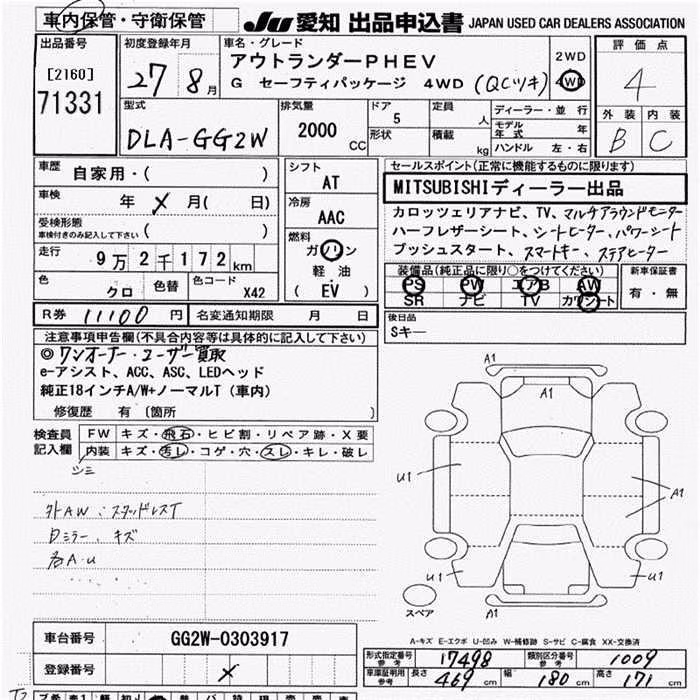 車内保管・守衛保管
JU 愛知 出品申込書 JAPAN USED CAR DEALERS ASSOCIATION
出品番号
[2160]
71331
初度登録年月
27 8月
車名・グレード
アウトランダーPHEV
G セーフティパッケージ 4WD (QCツキ)
2WD
4WD
評価点
4
外装 内装
B C
型式
DLA-GG2W
排気量
2000
CC
ドア
5
形状
定員
人
積載
kg
ディーラー・並行
モデル年式 年
ハンドル 左・右
車歴
自家用・( )
車検
年 メ 月( 日)
受検形態
車検付きのみ記入して下さい ( )
走行
9万2千172km
色
クロ
色替
色コード
X42
シフト
AT
冷房
AAC
燃料
ガソリン
軽油
(EV)
セールスポイント(正常に機能するものに限ります)
MITSUBISHIディーラー出品
カロッツェリアナビ、TV、マルチアラウンドモニター
ハーフレザーシート、シートヒーター、パワーシート
プッシュスタート、スマートキー、ステアヒーター
装備品(純正品に限り○をつけてください)
PS PW エアB AW
SR ナビ TV カワシート
新車保証書
有・無
R券 11100円
名変通知期限 月 日
後日品
Sキー
注意事項申告欄(不具合内容等は具体的に記入して下さい)
◎ワンオーナー・ユーザー買取
e-アシスト、ACC、ASC、LEDヘッド
純正18インチA/W+ノーマルT(車内)
修復歴 有 〔箇所 〕
検査員記入欄
FW キズ・飛石・ヒビ割・リペア跡・X要
内装 キズ・汚レ・コゲ・穴・スレ・キレ・破レ
シミ
外AW:スタッドレスT
Dミラー、キズ
各A・U
A1
A1
U1
A1
U1
U1
A1
スペア
A-キズ E-エクボ U-凹み W-補修跡 S-サビ C-腐食 XX-交換済
車台番号
GG2W-0303917
登録番号
メ
形式指定番号 参考
17498
類別区分番号 参考
1009
車庫証明用 参考
長さ 469cm 幅 180cm 高さ 171cm